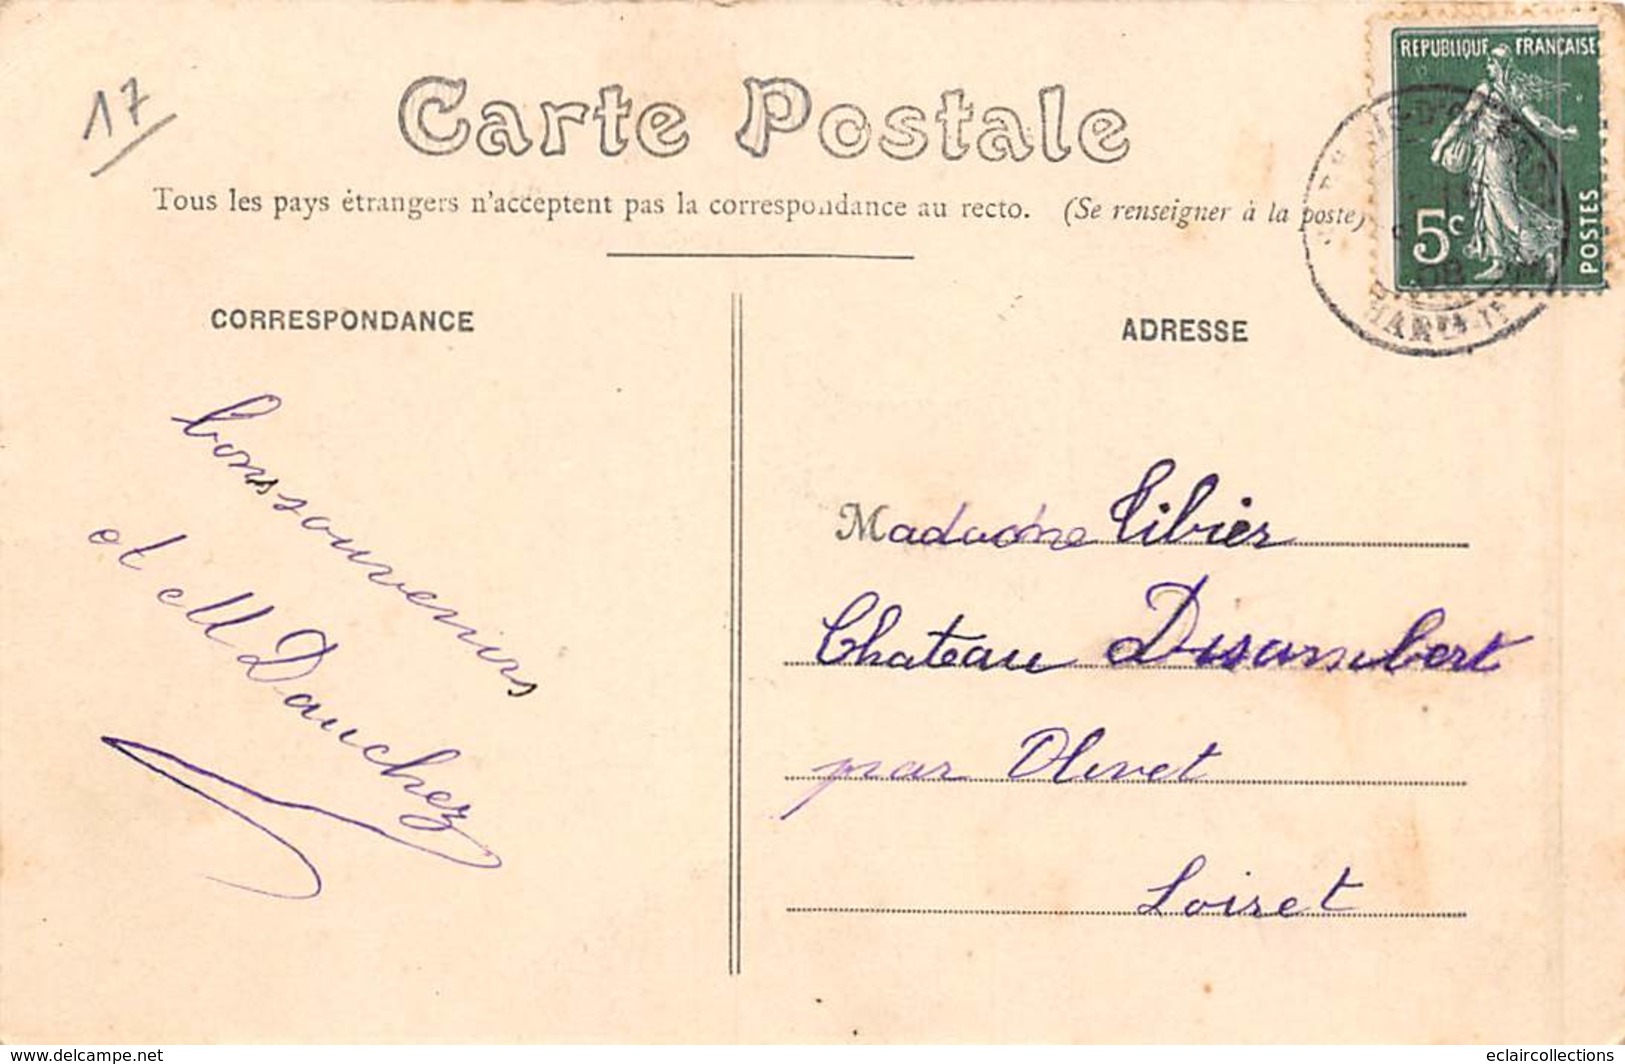 17
Carte Postale
Tous les pays étrangers n'acceptent pas la correspondance au recto. (Se renseigner à la poste)
REPUBLIQUE FRANÇAISE
5c
POSTES
08
CORRESPONDANCE
ADRESSE
bons souvenirs
et M Dauchez
Madame Tibier
Chateau Disambert
par Olivet
Loiret
www.delcampe.net
eclaircollections